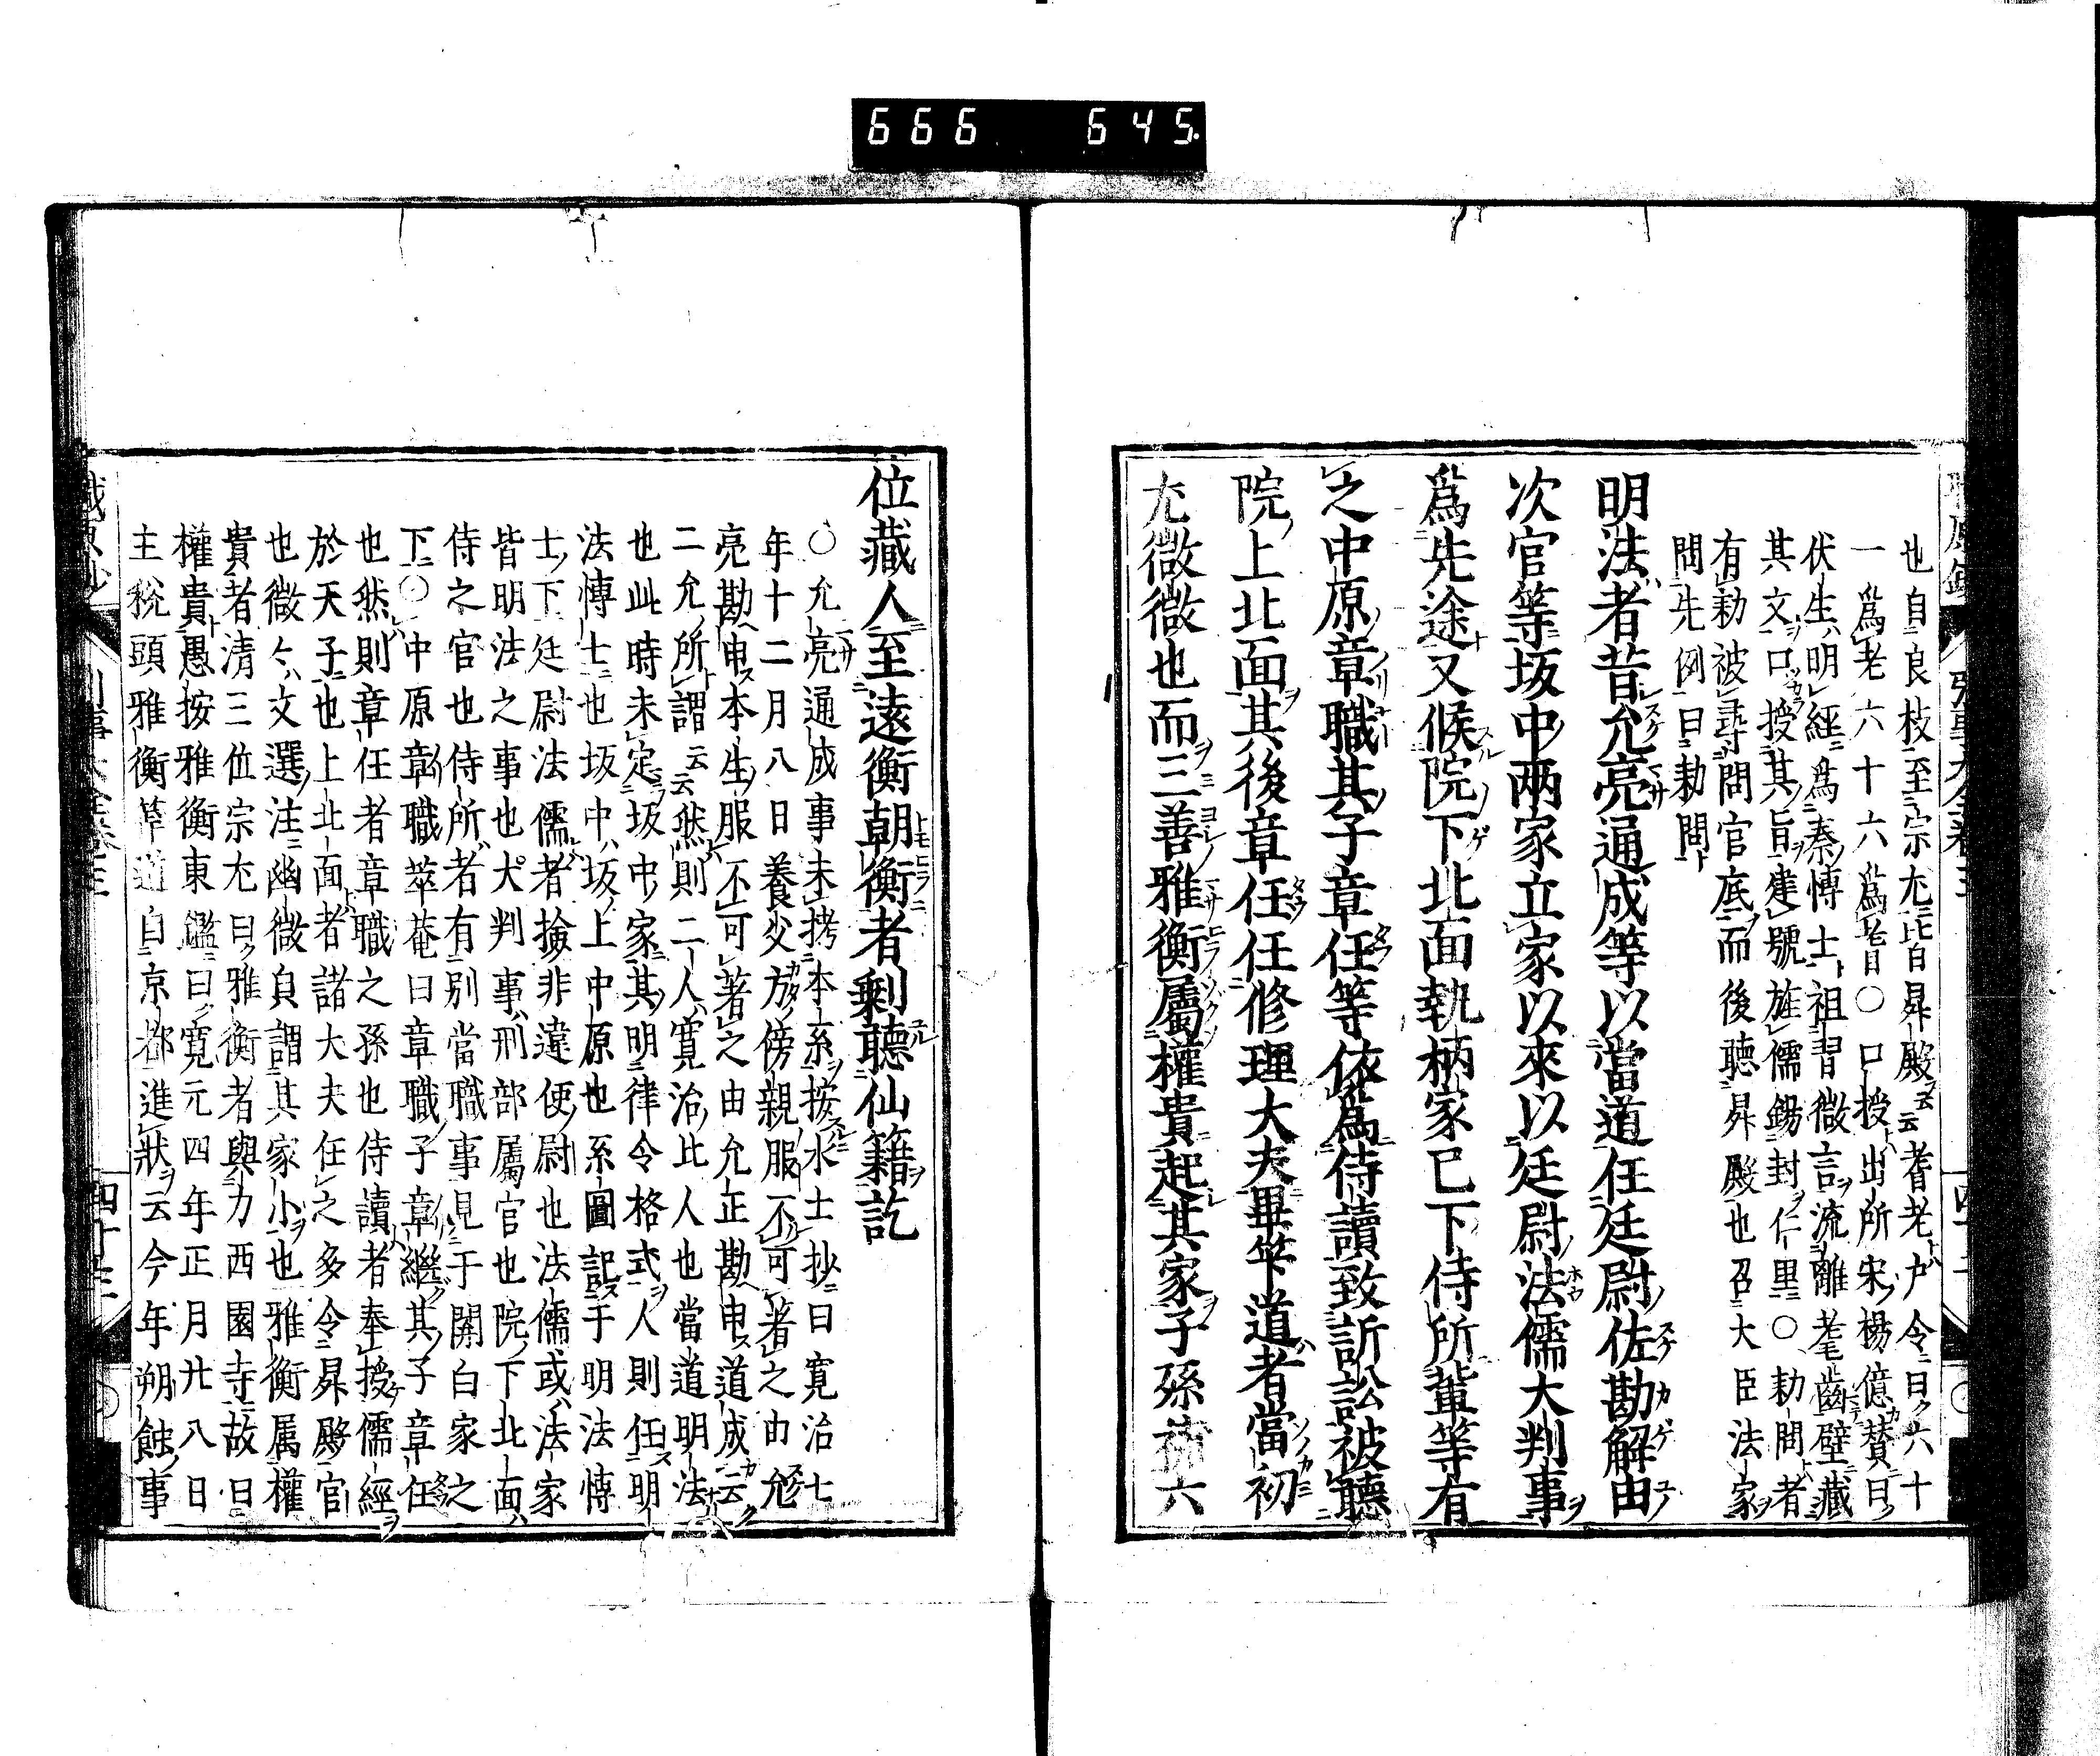 666 645.
也自良枝至宗尤皆昇殿云云耆老戸令曰六十
一爲老六十六爲耆〇口授出所宋楊億賛曰
伏生明經爲秦博士祖習微言流離耄齒壁藏
其文口授其旨建號旌儒錫封仁里〇勅問者
有勅被尋問官底而後聽昇殿也召大臣法家
問先例曰勅問
明法者昔允亮通成等以當道任廷尉佐勘解由
次官等坂中兩家立家以來以廷尉法儒大判事
爲先途又候院下北面執柄家已下侍所輩等有
之中原章職其子章任等依爲侍讀致訴訟被聽
院上北面其後章任任修理大夫畢笇道者當初
尤微微也而三善雅衡屬權貴起其家子孫補六
位藏人至遠衡朝衡者剩聽仙籍訖
〇允亮通成事未考本系按水士抄曰寛治七
年十二月八日養父方傍親服不可著之由允
亮勘申本生服不可著之由允正勘申道成云
二允所謂云云然則二人寛治比人也當道明法
也此時未定坂中家其明律令格式人則任明
法博士也坂中坂上中原也系圖記于明法博
士下廷尉法儒者撿非違使尉也法儒或法家
皆明法之事也大判事刑部屬官也院下北面
侍之官也侍所者有別當職事見于關白家之
下〇中原章職萃菴曰章職子章繼其子章任
也然則章任者章職之孫也侍讀者奉授儒經
於天子也上北面者諸大夫任之多令昇殿官
也微微文選注幽微貟謂其家小也雅衡属權
貴者清三位宗尤曰雅衡者與力西園寺故曰
權貴愚按雅衡東鑑曰寛元四年正月廿八日
主税頭雅衡筭道自京都進狀云今年朔蝕事
四十三